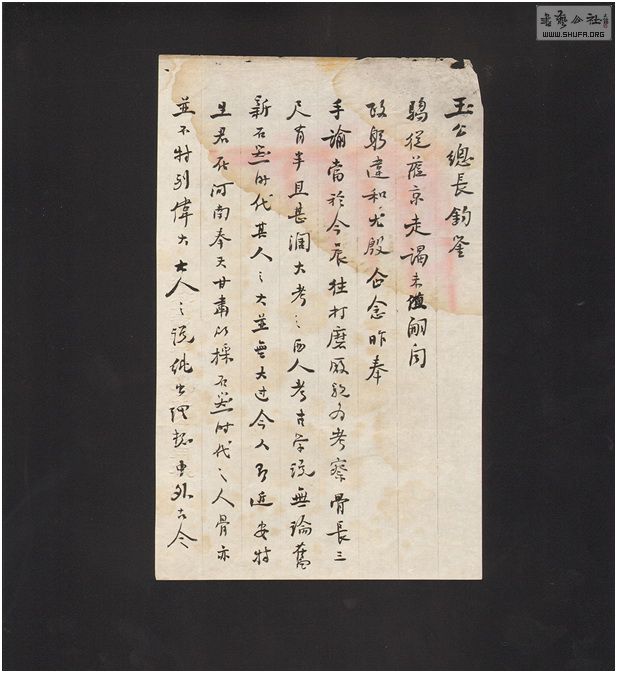 玉公總長鈞鉴
騶從蒞京走謁未值嗣闻
政躬違和无殷企念昨奉
手諭當於今晨往打磨厰親为考察骨長三
尺有半且甚濶大考之西人考古学说無論舊
新石器时代其人之大並無大过今人即近安特
生君在河南奉天甘肅所採石器时代之人骨亦
並不特别偉大大人之说純出理想中外古今
書藝公社
WWW.SHUFA.ORG